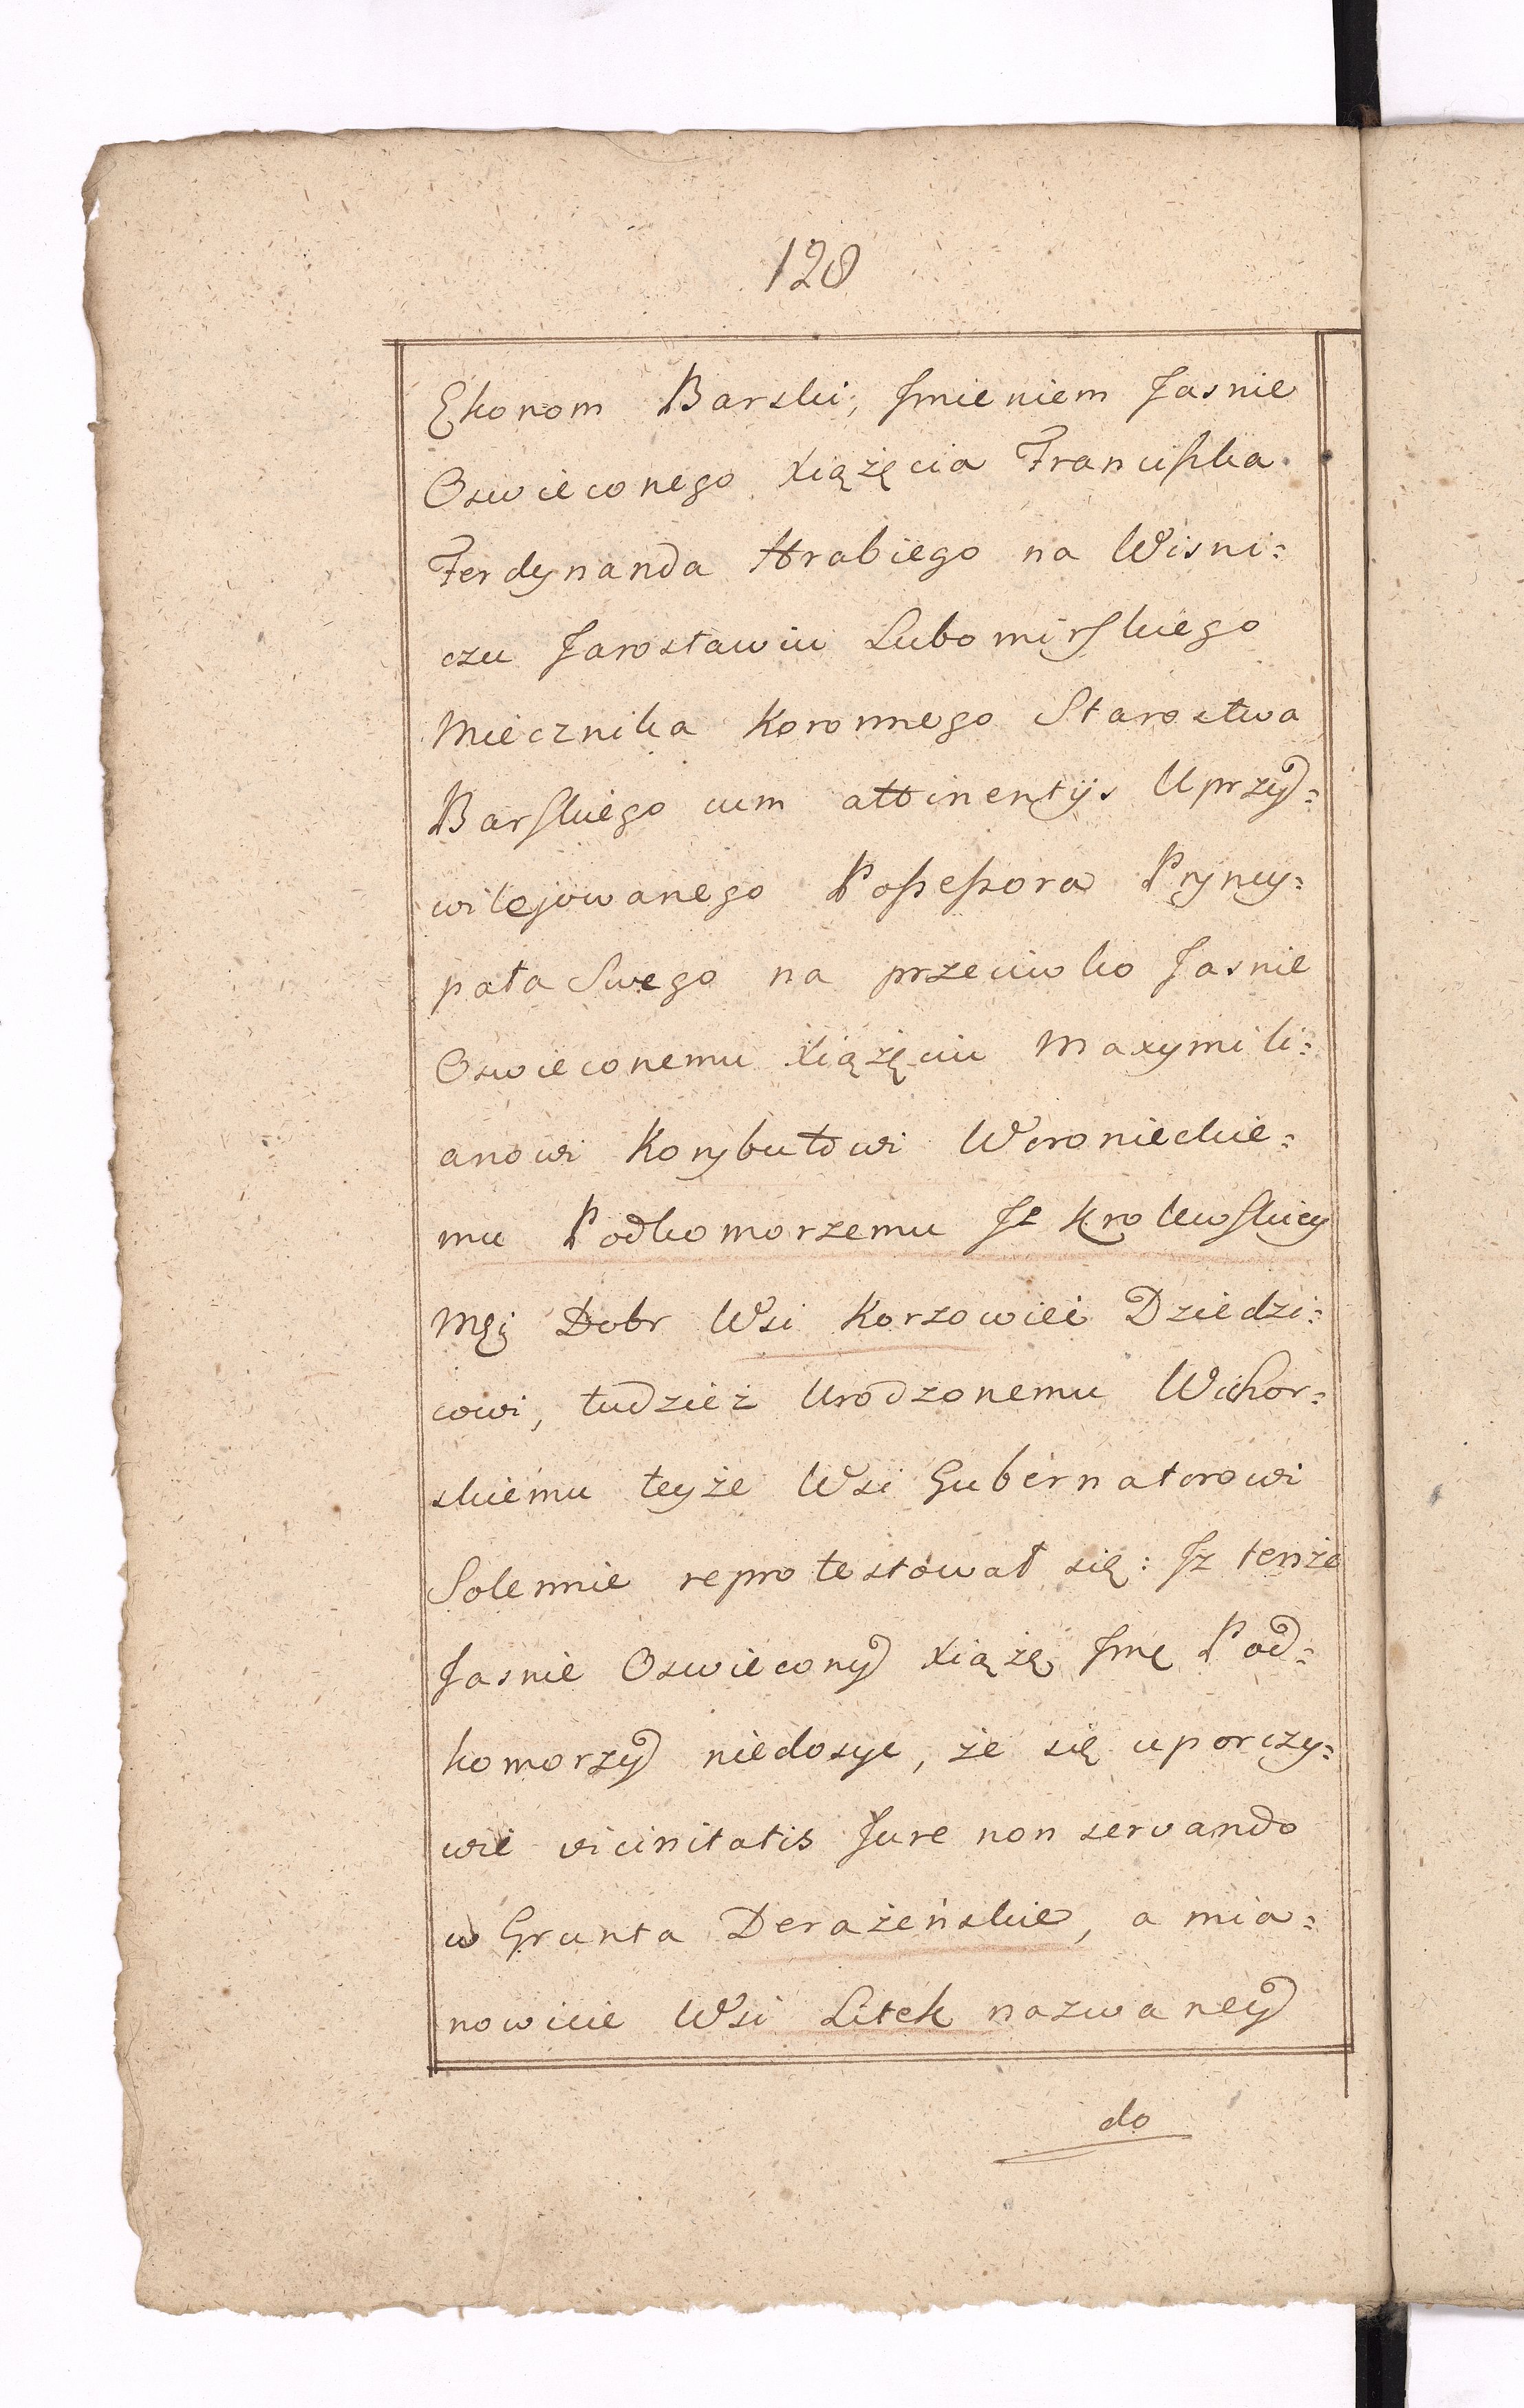 128
Ekonom Barski, Jmieniem Jasnie
Oswieconego Xiążęcia Franciszka
Ferdynanda Hrabiego na Wisni=
czu Jarosławiu Lubomirskiego
Miecznika Koronnego Starostwa
Barskiego cum attinentijs Uprzy=
wilejowanego Possessora Pryncy=
pała Swego na przeciwko Jasnie
Oswieconemu Xiążęciu Maxymili=
anowi Korybutowi Woronieckie=
mu Podkomorzemu Je Krolewskiey
Mći Dobr Wsi Korzowiec Dziedzi=
cowi, tudzież Urodzonemu Wichor=
skiemu teyże Wsi Gubernatorowi
Solennie reprotestował się: Jz tenże
Jasnie Oswiecony Xiążę Jmę Pod=
komorzy niedosyc, że się uporczy=
wie vicinitatis Jure non servando
w Grunta Derażeńskie, a mia=
nowicie Wsi Litek nazwaney
do